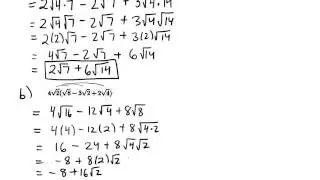 = 2√4·7 - 2√7 + 3√4·14
= 2√4√7 - 2√7 + 3√4√14
= 2(2)√7 - 2√7 + 3(2)√14
= 4√7 - 2√7 + 6√14
= 2√7 + 6√14
b) 4√2(√8 - 3√2 + 2√4)
= 4√16 - 12√4 + 8√8
= 4(4) - 12(2) + 8√4·2
= 16 - 24 + 8√4√2
= -8 + 8(2)√2
= -8 + 16√2